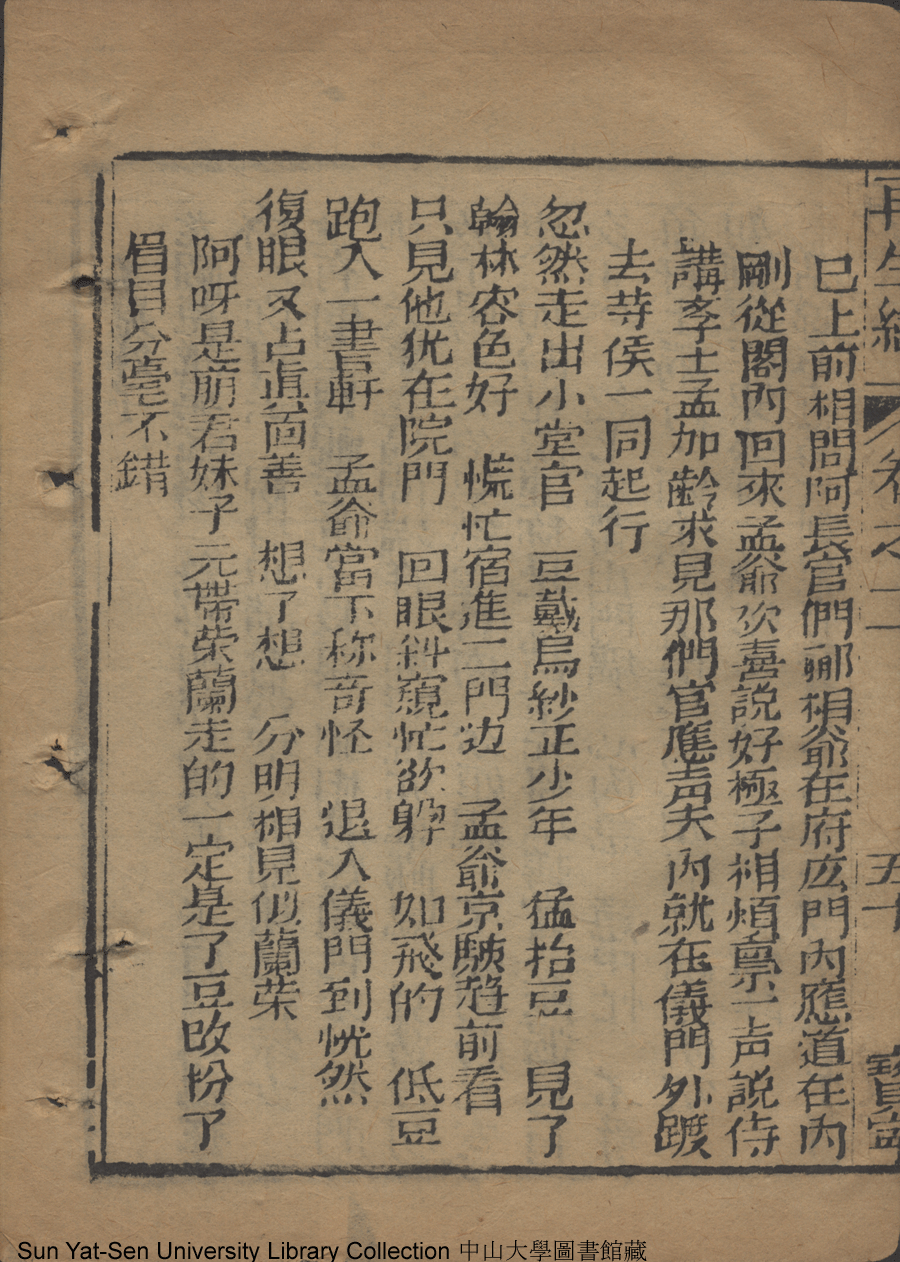 再生緣 卷之二 五十 寶寧
已上前相問阿長官們郦相爺在府庅門內應道在內
剛從閣內回來孟爺欢喜説好極子相煩禀一声説侍
講孝士孟加齡求見那們官應声夫內就在儀門外踱
去䒭侯一同起行
忽然走出小堂官 豆戴烏紗正少年 猛抬豆 見了
翰林容色好 慌忙宿進二門边 孟爺京駭趋前看
只見他犹在院門 回眼斜窺忙欲躱 如飛的 低豆
跑入一書軒 孟爺當下称奇怪 退入儀門到恍然
復眼又占真面善 想了想 分明相見似蘭荣
阿呀是丽君妹子元帶荣蘭走的一定是了豆改扮了
眉目分毫不錯
Sun Yat-Sen University Library Collection 中山大學圖書館藏